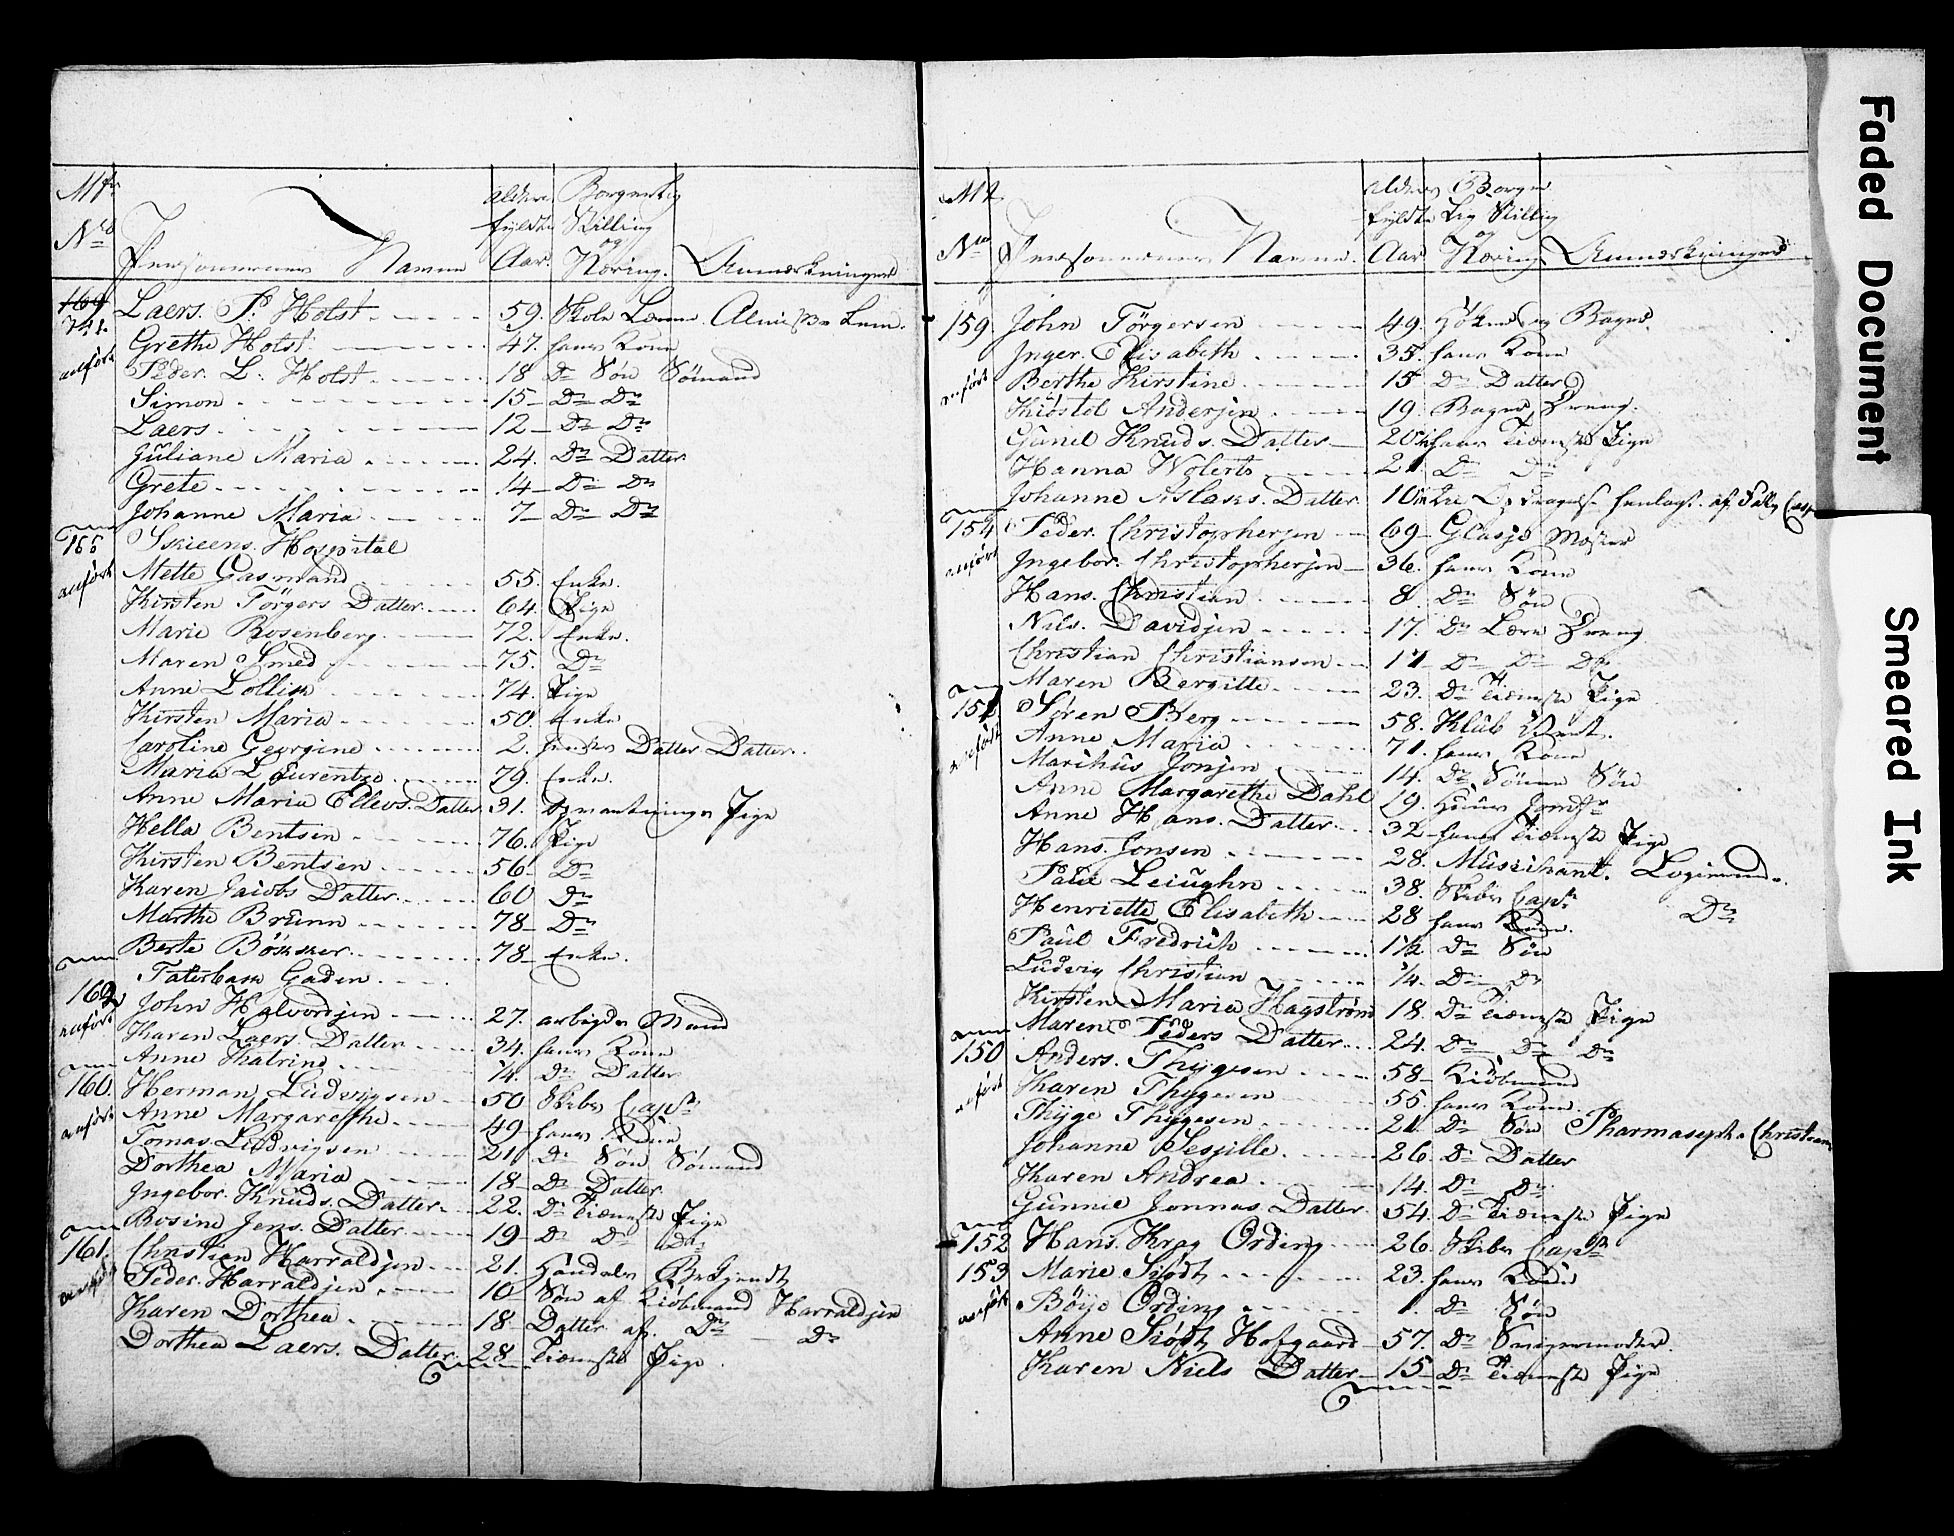 Mt Nro Personernes Navne Alders fyldte Aar. Borgerlig Stilling og Næring. Anmærkninger
169 Laers. P. Holst 59. Skole Lærer
Grethe Holst 47. hans Kone
anført Peder. L. Holst 18 Do Søn Sømand
Simon 15 Do Do
Laers 12 Do Do
Juliane Maria 24. Do Datter
Grete 14 Do Do
Johanne Maria 7 Do Do
165 Skieens Hospital
anført Mette Gasmand 55. Enke.
Kirsten Törgers Datter 64. Pige
Marie Rosenberg 72. Enke.
Maren Smed 75. Do
Anne Lollik 74. Pige
Kirsten Maria 50. Enke
Caroline Georgine 2. Datter Datter
Maria Laurentze 79. Enke.
Anne Maria Ellevs. Datter 31. Pige
Hella Bentsen 76. Pige
Kirsten Bentsen 56 Do
Karen Jacobs Datter 60 Do
Marthe Brunn 78 Do
Berte Bösker 78 Enke.
Taterbask Gaden
162 John Halvordsen 27. arbeyds Mand
anført Karen Laers Datter 34. hans Kone
Anne Katrine 14. Do Datter
160. Herman Ludvigsen 50 Skibs Capt
anført Anne Margarethe 49 hans Kone
Tomas Ludvigsen 21 Do Søn Sømand
Dorthea Maria 18 Do Datter
Ingebor. Knuds. Datter 22. Do Tieneste Pige
Rosine Jens. Datter 19 Do Do Do
161. Christian Harraldsen 21. Handels Betjendt
anført Peder. Harraldsen 10 Søn af Kiøbmand Harraldsen
Karen Dorthea 18 Datter af. Do Do
Dorthea Laers. Datter. 28 Tieneste Pige
Mt Nro Personernes Navne. Alders fyldte Aar Borger Lig Stillig og Næring. Anmærkninger
159. John Törgersen 49. Høker og Bager
Inger. Elisabeth 35. hans Kone
anført Berthe Kirstine 15 Do Datter
Kiöstol Andersen 19. Bager Dreng.
Gunel Knuds. Datter 20 hans Tieneste Pige
Hanna Wolerts 2 Do Do
Johanne Aslaks. Datter 10
154 Peder. Christophersen 69 Glasje Mester
anført Ingebor. Christophersen 36. hans Kone
Hans. Christian 8 Do Søn
Nils. Davidsen 17. Do Lære Dreng
Christian Christiansen 17 Do Do Do
Maren Bergitte 23. Do Tieneste Pige
151 Sören Berg 58. Klub Vert.
anført Anne Maria 71. hans Kone
Marihus Jonsen 14. Do Søn
Anne Margarethe Dahl 19.
Anne Hans. Datter 32 hans Tieneste Pige
Hans. Jonsen 28. Musikant. Logerende.
Paul Leiughn 38. Skibs Capt Do
Henriette Elisabeth 28 hans Kone.
Paul Fredrich 1½ Do Søn
Ludvig Christian ¼. Do Do
Kirsten Maria Hagström 18. Do Tieneste Pige
Maren Peders Datter 24. Do Do Do
150 Anders. Thygesen 58 Kiøbmand
anført Karen Thygesen 55. hans Kone.
Thyge Thygesen 21. Do Søn
Johanne Sesjille 26. Do Datter
Karen Andrea 14. Do Do
Gunnil Jonnas Datter 54. Do Tieneste Pige
152 Hans. Krag Ording 26. Skibs Capt
153 Marie Siödt 23. hans Kone
anført Böije Ording Do Søn
Anne Siödt Hofgaard 57. Do Svigermoder.
Karen Niels Datter 15 Do Tieneste Pige
Faded Document
Smeared Ink